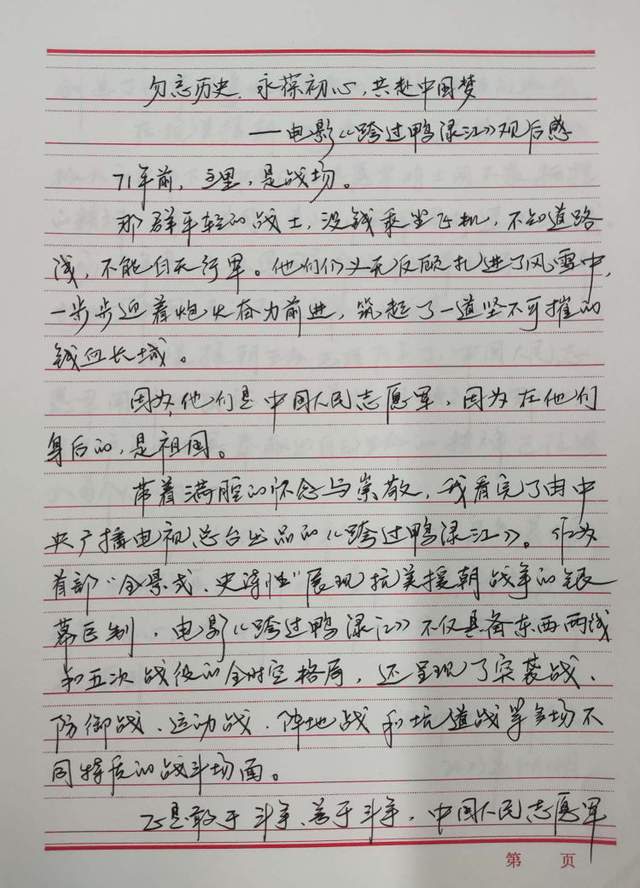 勿忘历史、永葆初心,共赴中国梦
——电影《跨过鸭渌江》观后感
71年前,这里,是战场。
那群年轻的战士,没钱乘坐飞机,不知道路
线,不能白天行军。他们们义无反顾扎进了风雪中,
一步步迎着炮火奋力前进,筑起了一道坚不可摧的
钱血长城。
因为,他们是中国人民志愿军,因为在他们
身后的,是祖国。
带着满腔的怀念与崇敬,我看完了由中
央广播电视总台出品的《跨过鸭渌江》。作为
首部“全景式、史诗性”展现抗美援朝战争的银
幕巨制,电影《跨过鸭渌江》不仅具备东西两线
和五次战役的全时空格局,还呈现了突袭战、
防御战、运动战、阵地战和坑道战等多场不
同特质的战斗场面。
正是敢于斗争、善于斗争,中国人民志愿军
第 页